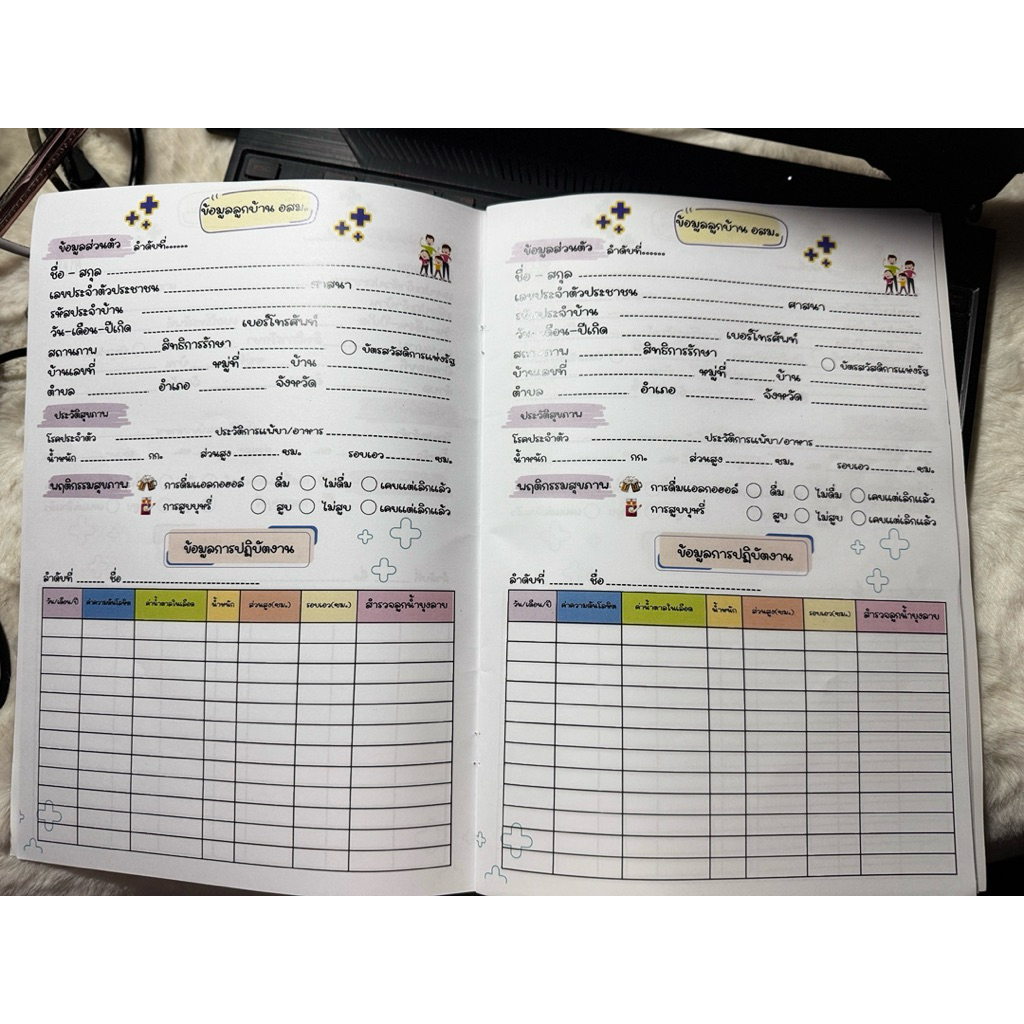 ข้อมูลลูกบ้าน อสม.
ข้อมูลส่วนตัว ลำดับที่......
ชื่อ - สกุล
เลขประจำตัวประชาชน ศาสนา
รหัสประจำบ้าน
วัน-เดือน-ปีเกิด เบอร์โทรศัพท์
สถานภาพ สิทธิการรักษา บัตรสวัสดิการแห่งรัฐ
บ้านเลขที่ หมู่ที่ บ้าน
ตำบล อำเภอ จังหวัด
ประวัติสุขภาพ
โรคประจำตัว ประวัติการแพ้ยา/อาหาร
น้ำหนัก กก. ส่วนสูง ซม. รอบเอว ซม.
พฤติกรรมสุขภาพ การดื่มแอลกอฮอล์ ดื่ม ไม่ดื่ม เคยแต่เลิกแล้ว
การสูบบุหรี่ สูบ ไม่สูบ เคยแต่เลิกแล้ว
ข้อมูลการปฏิบัติงาน
ลำดับที่ ชื่อ
วัน/เดือน/ปี ค่าความดันโลหิต ค่าน้ำตาลในเลือด น้ำหนัก ส่วนสูง(ซม.) รอบเอว(ซม.) สำรวจลูกน้ำยุงลาย
ข้อมูลลูกบ้าน อสม.
ข้อมูลส่วนตัว ลำดับที่......
ชื่อ - สกุล
เลขประจำตัวประชาชน ศาสนา
รหัสประจำบ้าน
วัน-เดือน-ปีเกิด เบอร์โทรศัพท์
สถานภาพ สิทธิการรักษา บัตรสวัสดิการแห่งรัฐ
บ้านเลขที่ หมู่ที่ บ้าน
ตำบล อำเภอ จังหวัด
ประวัติสุขภาพ
โรคประจำตัว ประวัติการแพ้ยา/อาหาร
น้ำหนัก กก. ส่วนสูง ซม. รอบเอว ซม.
พฤติกรรมสุขภาพ การดื่มแอลกอฮอล์ ดื่ม ไม่ดื่ม เคยแต่เลิกแล้ว
การสูบบุหรี่ สูบ ไม่สูบ เคยแต่เลิกแล้ว
ข้อมูลการปฏิบัติงาน
ลำดับที่ ชื่อ
วัน/เดือน/ปี ค่าความดันโลหิต ค่าน้ำตาลในเลือด น้ำหนัก ส่วนสูง(ซม.) รอบเอว(ซม.) สำรวจลูกน้ำยุงลาย